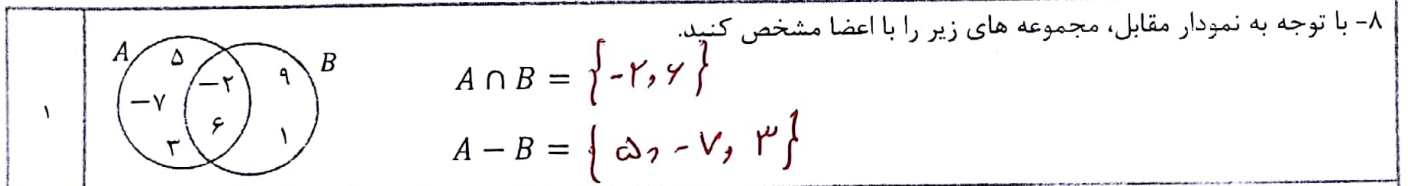 ۸- با توجه به نمودار مقابل، مجموعه های زیر را با اعضا مشخص کنید.
A ∩ B = {-۲, ۶}
A − B = {۵, -۷, ۳}
A
B
۵
−۲
۹
−۷
۶
۱
۳
۱